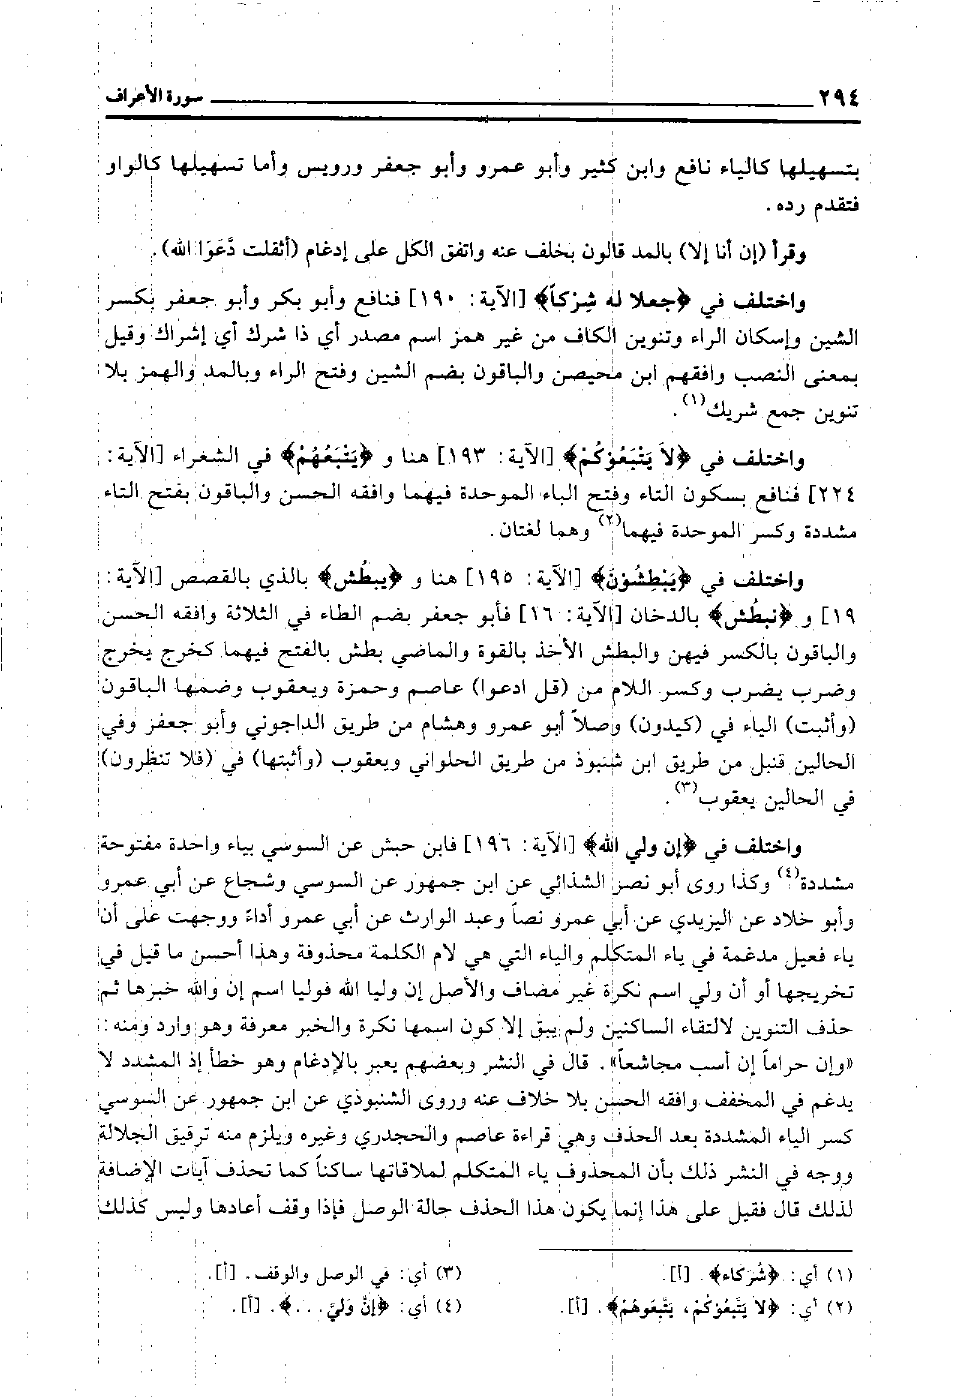 ٢٩٤ سورة الأعراف
بتسهيلها كالياء نافع وابن كثير وأبو عمرو وأبو جعفر ورويس وأما تسهيلها كالواو
فتقدم رده.
وقرأ (إن أنا إلا) بالمد قالون بخلف عنه واتفق الكل على إدغام (أثقلت دَّعَوَا الله).
واختلف في ﴿جعلا له شِرْكاً﴾ [الآية: ١٩٠] فنافع وأبو بكر وأبو جعفر بكسر
الشين وإسكان الراء وتنوين الكاف من غير همز اسم مصدر أي ذا شرك أي إشراك وقيل
بمعنى النصب وافقهم ابن محيصن والباقون بضم الشين وفتح الراء وبالمد والهمز بلا
تنوين جمع شريك(١).
واختلف في ﴿لاَ يَتْبَعُوْكُمْ﴾ [الآية: ١٩٣] هنا و ﴿يَتْبَعُهُمْ﴾ في الشعراء [الآية:
٢٢٤] فنافع بسكون التاء وفتح الباء الموحدة فيهما وافقه الحسن والباقون بفتح التاء
مشددة وكسر الموحدة فيهما(٢) وهما لغتان.
واختلف في ﴿يَبْطِشُوْنَ﴾ [الآية: ١٩٥] هنا و ﴿يبطُش﴾ بالذي بالقصص [الآية:
١٩] و ﴿نبطُش﴾ بالدخان [الآية: ١٦] فأبو جعفر بضم الطاء في الثلاثة وافقه الحسن
والباقون بالكسر فيهن والبطش الأخذ بالقوة والماضي بطش بالفتح فيهما كخرج يخرج
وضرب يضرب وكسر اللام من (قل ادعوا) عاصم وحمزة ويعقوب وضمها الباقون
(وأثبت) الياء في (كيدون) وصلاً أبو عمرو وهشام من طريق الداجوني وأبو جعفر وفي
الحالين قنبل من طريق ابن شنبوذ من طريق الحلواني ويعقوب (وأثبتها) في (فلا تنظرون)
في الحالين يعقوب(٣).
واختلف في ﴿إن ولي الله﴾ [الآية: ١٩٦] فابن حبش عن السوسي بياء واحدة مفتوحة
مشددة(٤) وكذا روى أبو نصر الشذائي عن ابن جمهور عن السوسي وشجاع عن أبي عمرو
وأبو خلاد عن اليزيدي عن أبي عمرو نصاً وعبد الوارث عن أبي عمرو أداءً ووجهت على أن
ياء فعيل مدغمة في ياء المتكلم والياء التي هي لام الكلمة محذوفة وهذا أحسن ما قيل في
تخريجها أو أن ولي اسم نكرة غير مضاف والأصل إن وليا الله فوليا اسم إن والله خبرها ثم
حذف التنوين لالتقاء الساكنين ولم يبق إلا كون اسمها نكرة والخبر معرفة وهو وارد ومنه:
«وإن حراماً إن أسب مجاشعاً». قال في النشر وبعضهم يعبر بالإدغام وهو خطأ إذ المشدد لا
يدغم في المخفف وافقه الحسن بلا خلاف عنه وروى الشنبوذي عن ابن جمهور عن السوسي
كسر الياء المشددة بعد الحذف وهي قراءة عاصم والحجدري وغيره ويلزم منه ترقيق الجلالة
ووجه في النشر ذلك بأن المحذوف ياء المتكلم لملاقاتها ساكناً كما تحذف آيات الإضافة
لذلك قال فقيل على هذا إنما يكون هذا الحذف حالة الوصل فإذا وقف أعادها وليس كذلك
(١) أي: ﴿شُرَكاء﴾. [أ].
(٢) أي: ﴿لاَ يَتَّبِعُوْكُمْ، يَتَّبِعوهُمْ﴾. [أ].
(٣) أي: في الوصل والوقف. [أ].
(٤) أي: ﴿إنَّ وَليَّ...﴾. [أ].